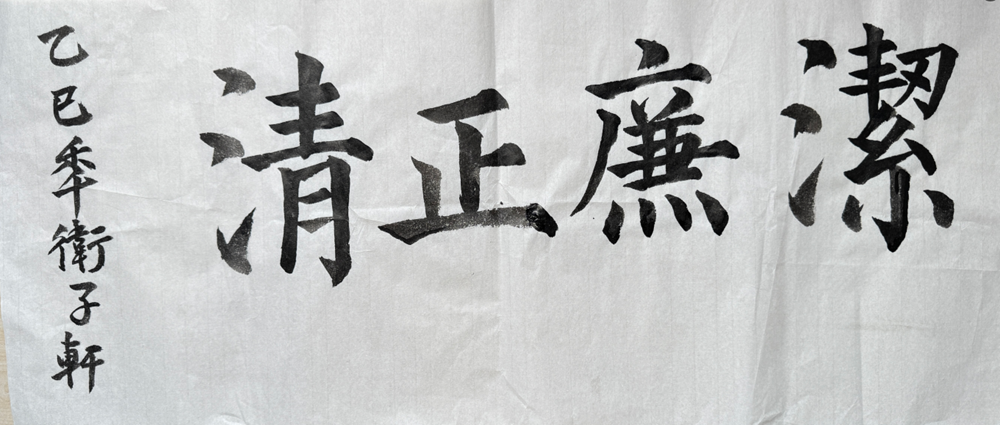 潔廉正清
乙巳秊衛子軒